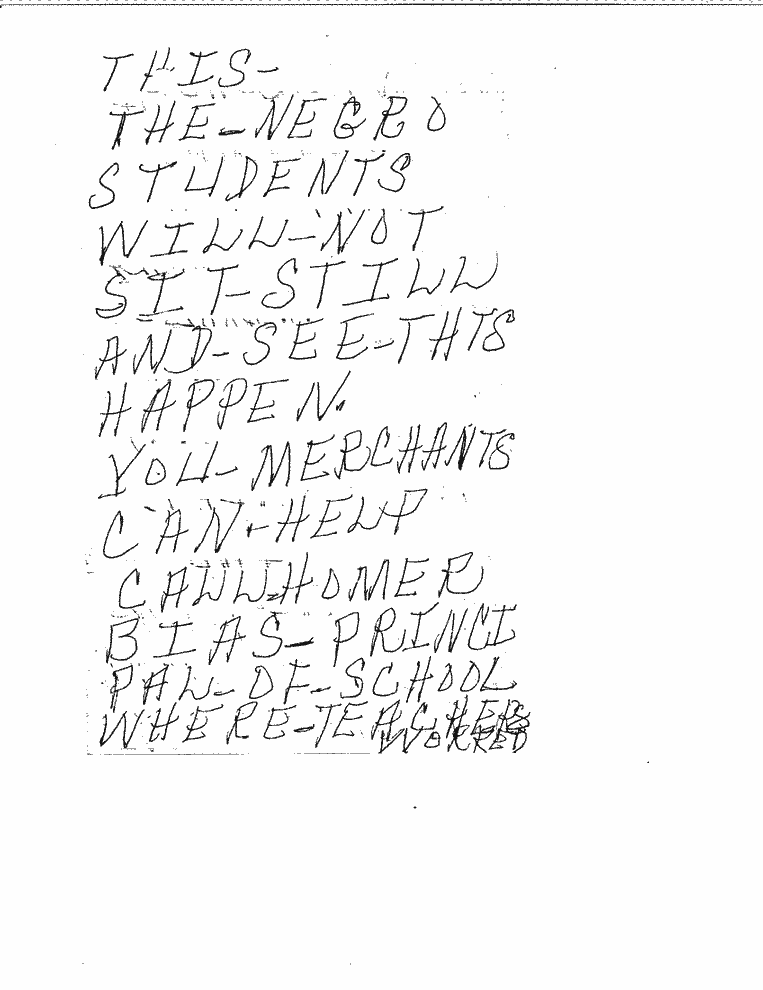 THIS-
THE-NEGRO
STUDENTS
WILL-NOT
SIT-STILL
AND-SEE-THIS
HAPPEN.
YOU-MERCHANTS
CAN-HELP
CALL-HOMER
BIAS-PRINCI
PAL-OF-SCHOOL
WHERE-TEACHERS
WORKED